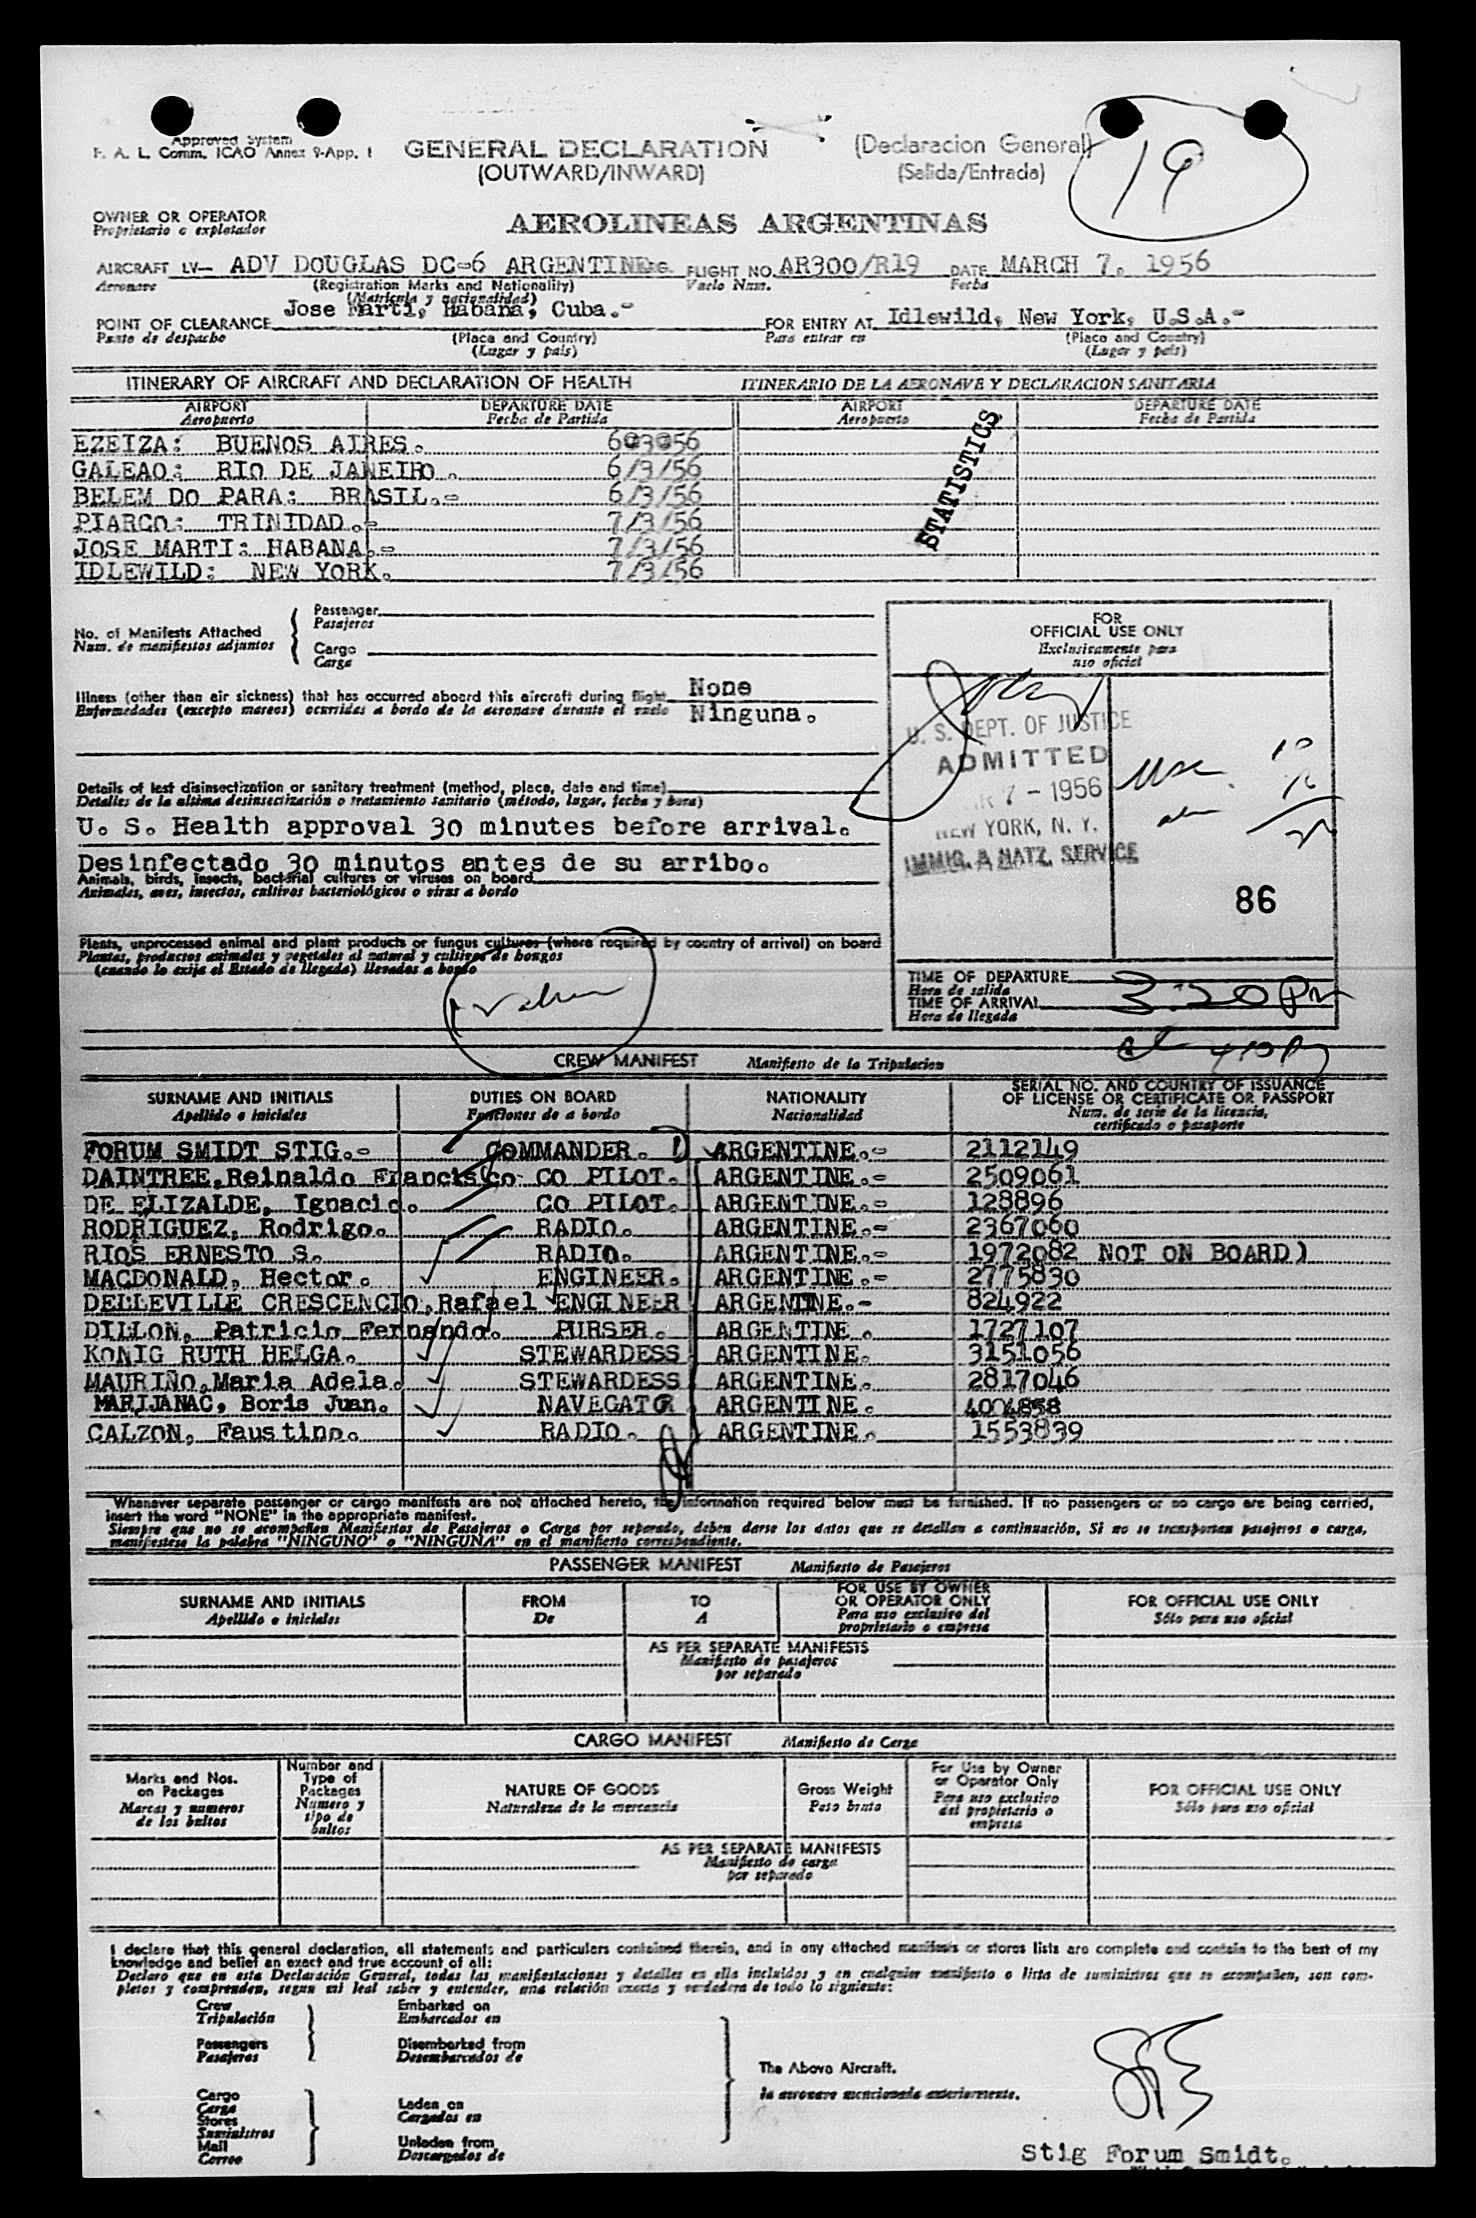 Approved System
F. A. L. Comm. ICAO Annex 9-App. 1
GENERAL DECLARATION
(OUTWARD/INWARD)
(Declaracion General)
(Salida/Entrada)
19
OWNER OR OPERATOR
Proprietario o explotador
AEROLINEAS ARGENTINAS
AIRCRAFT LV- ADV DOUGLAS DC-6 ARGENTINE FLIGHT NO. AR300/R19 DATE MARCH 7. 1956
Aeronave (Registration Marks and Nationality) Vuelo Num. Fecha
(Matricula y nacionalidad)
Jose Marti, Habana, Cuba.-
POINT OF CLEARANCE FOR ENTRY AT Idlewild, New York, U.S.A.-
Punto de despacho (Place and Country) Para entrar en (Place and Country)
(Lugar y pais) (Lugar y pais)
ITINERARY OF AIRCRAFT AND DECLARATION OF HEALTH ITINERARIO DE LA AERONAVE Y DECLARACION SANITARIA
AIRPORT DEPARTURE DATE AIRPORT DEPARTURE DATE
Aeropuerto Fecha de Partida Aeropuerto Fecha de Partida
EZEIZA: BUENOS AIRES. 6@3@56
GALEAO: RIO DE JANEIRO. 6/3/56
BELEM DO PARA: BRASIL.- 6/3/56
PIARCO: TRINIDAD.- 7/3/56
JOSE MARTI: HABANA.- 7/3/56
IDLEWILD: NEW YORK. 7/3/56
STATISTICS
No. of Manifests Attached
Num. de manifiestos adjuntos
Passenger
Pasajeros
Cargo
Carga
FOR
OFFICIAL USE ONLY
Exclusicamente para
uso oficial
Illness (other than air sickness) that has occurred aboard this aircraft during flight None
Enfermedades (excepto mareos) ocurridas a bordo de la aeronave durante el vuelo Ninguna.
U. S. DEPT. OF JUSTICE
ADMITTED
7 - 1956
NEW YORK, N. Y.
IMMIG. & NATZ. SERVICE
86
Details of last disinsectization or sanitary treatment (method, place, date and time)
Detalles de la ultima desinsectización o tratamiento sanitario (método, lugar, fecha y hora)
U. S. Health approval 30 minutes before arrival.
Desinfectado 30 minutos antes de su arribo.
Animals, birds, insects, bacterial cultures or viruses on board
Animales, aves, insectos, cultivos bacteriológicos o virus a bordo
Plants, unprocessed animal and plant products or fungus cultures (where required by country of arrival) on board
Plantas, productos animales y vegetales al natural y cultivos de hongos
(cuando lo exija el Estado de llegada) llevados a bordo
TIME OF DEPARTURE
Hora de salida
TIME OF ARRIVAL 3:20 PM
Hora de llegada
CREW MANIFEST Manifiesto de la Tripulacion
SURNAME AND INITIALS DUTIES ON BOARD NATIONALITY SERIAL NO. AND COUNTRY OF ISSUANCE
OF LICENSE OR CERTIFICATE OR PASSPORT
Apellido e iniciales Funciones de a bordo Nacionalidad Num. de serie de la licencia,
certificado o pasaporte
FORUM SMIDT STIG.- COMMANDER. ARGENTINE.- 2112149
DAINTREE,Reinaldo Francisco CO PILOT. ARGENTINE.- 2509061
DE ELIZALDE, Ignacio. CO PILOT. ARGENTINE.- 128896
RODRIGUEZ, Rodrigo. RADIO. ARGENTINE.- 2367060
RIOS ERNESTO S. RADIO. ARGENTINE.- 1972082 NOT ON BOARD)
MACDONALD, Hector. ENGINEER. ARGENTINE.- 2775830
DELLEVILLE CRESCENCIO,Rafael ENGINEER ARGENTINE.- 824922
DILLON, Patricio Fernando. PURSER. ARGENTINE. 1727107
KONIG RUTH HELGA. STEWARDESS ARGENTINE. 3151056
MAURIÑO,Maria Adela. STEWARDESS ARGENTINE. 2817046
MARIJANAC, Boris Juan. NAVEGATOR ARGENTINE. 4004858
CALZON, Faustino. RADIO. ARGENTINE. 1553839
Whenever separate passenger or cargo manifests are not attached hereto, the information required below must be furnished. If no passengers or no cargo are being carried,
insert the word "NONE" in the appropriate manifest.
Siempre que no se acompañen Manifiestos de Pasajeros o Carga por separado, deben darse los datos que se detallan a continuación, Si no se transportan pasajeros o carga,
manifiestese la palabra "NINGUNO" o "NINGUNA" en el manifiesto correspondiente.
PASSENGER MANIFEST Manifiesto de Pasajeros
SURNAME AND INITIALS FROM TO FOR USE BY OWNER
OR OPERATOR ONLY FOR OFFICIAL USE ONLY
Apellido e iniciales De A Para uso exclusivo del
propietario o empresa Sólo para uso oficial
AS PER SEPARATE MANIFESTS
Manifiesto de pasajeros
por separado
CARGO MANIFEST Manifiesto de Carga
Marks and Nos.
on Packages
Marcas y numeros
de los bultos
Number and
Type of
Packages
Numero y
tipo de
bultos
NATURE OF GOODS
Naturaleza de la mercancia
Gross Weight
Peso bruto
For Use by Owner
or Operator Only
Para uso exclusivo
del propietario o
empresa
FOR OFFICIAL USE ONLY
Sólo para uso oficial
AS PER SEPARATE MANIFESTS
Manifiesto de carga
por separado
I declare that this general declaration, all statements and particulars contained therein, and in any attached manifests or stores lists are complete and contain to the best of my
knowledge and belief an exact and true account of all:
Declaro que en esta Declaración General, todas las manifestaciones y detalles en ella incluidos y en cualquier manifiesto o lista de suministros que se acompañen, son com-
pletos y comprenden, segun mi leal saber y entender, una relación exacta y verdadera de todo lo siguiente:
Crew
Tripulación
Passengers
Pasajeros
Cargo
Carga
Stores
Suministros
Mail
Correo
Embarked on
Embarcados en
Disembarked from
Desembarcados de
Laden on
Cargados en
Unladen from
Descargados de
The Above Aircraft.
la aeronave mencionada anteriormente.
Stig Forum Smidt.